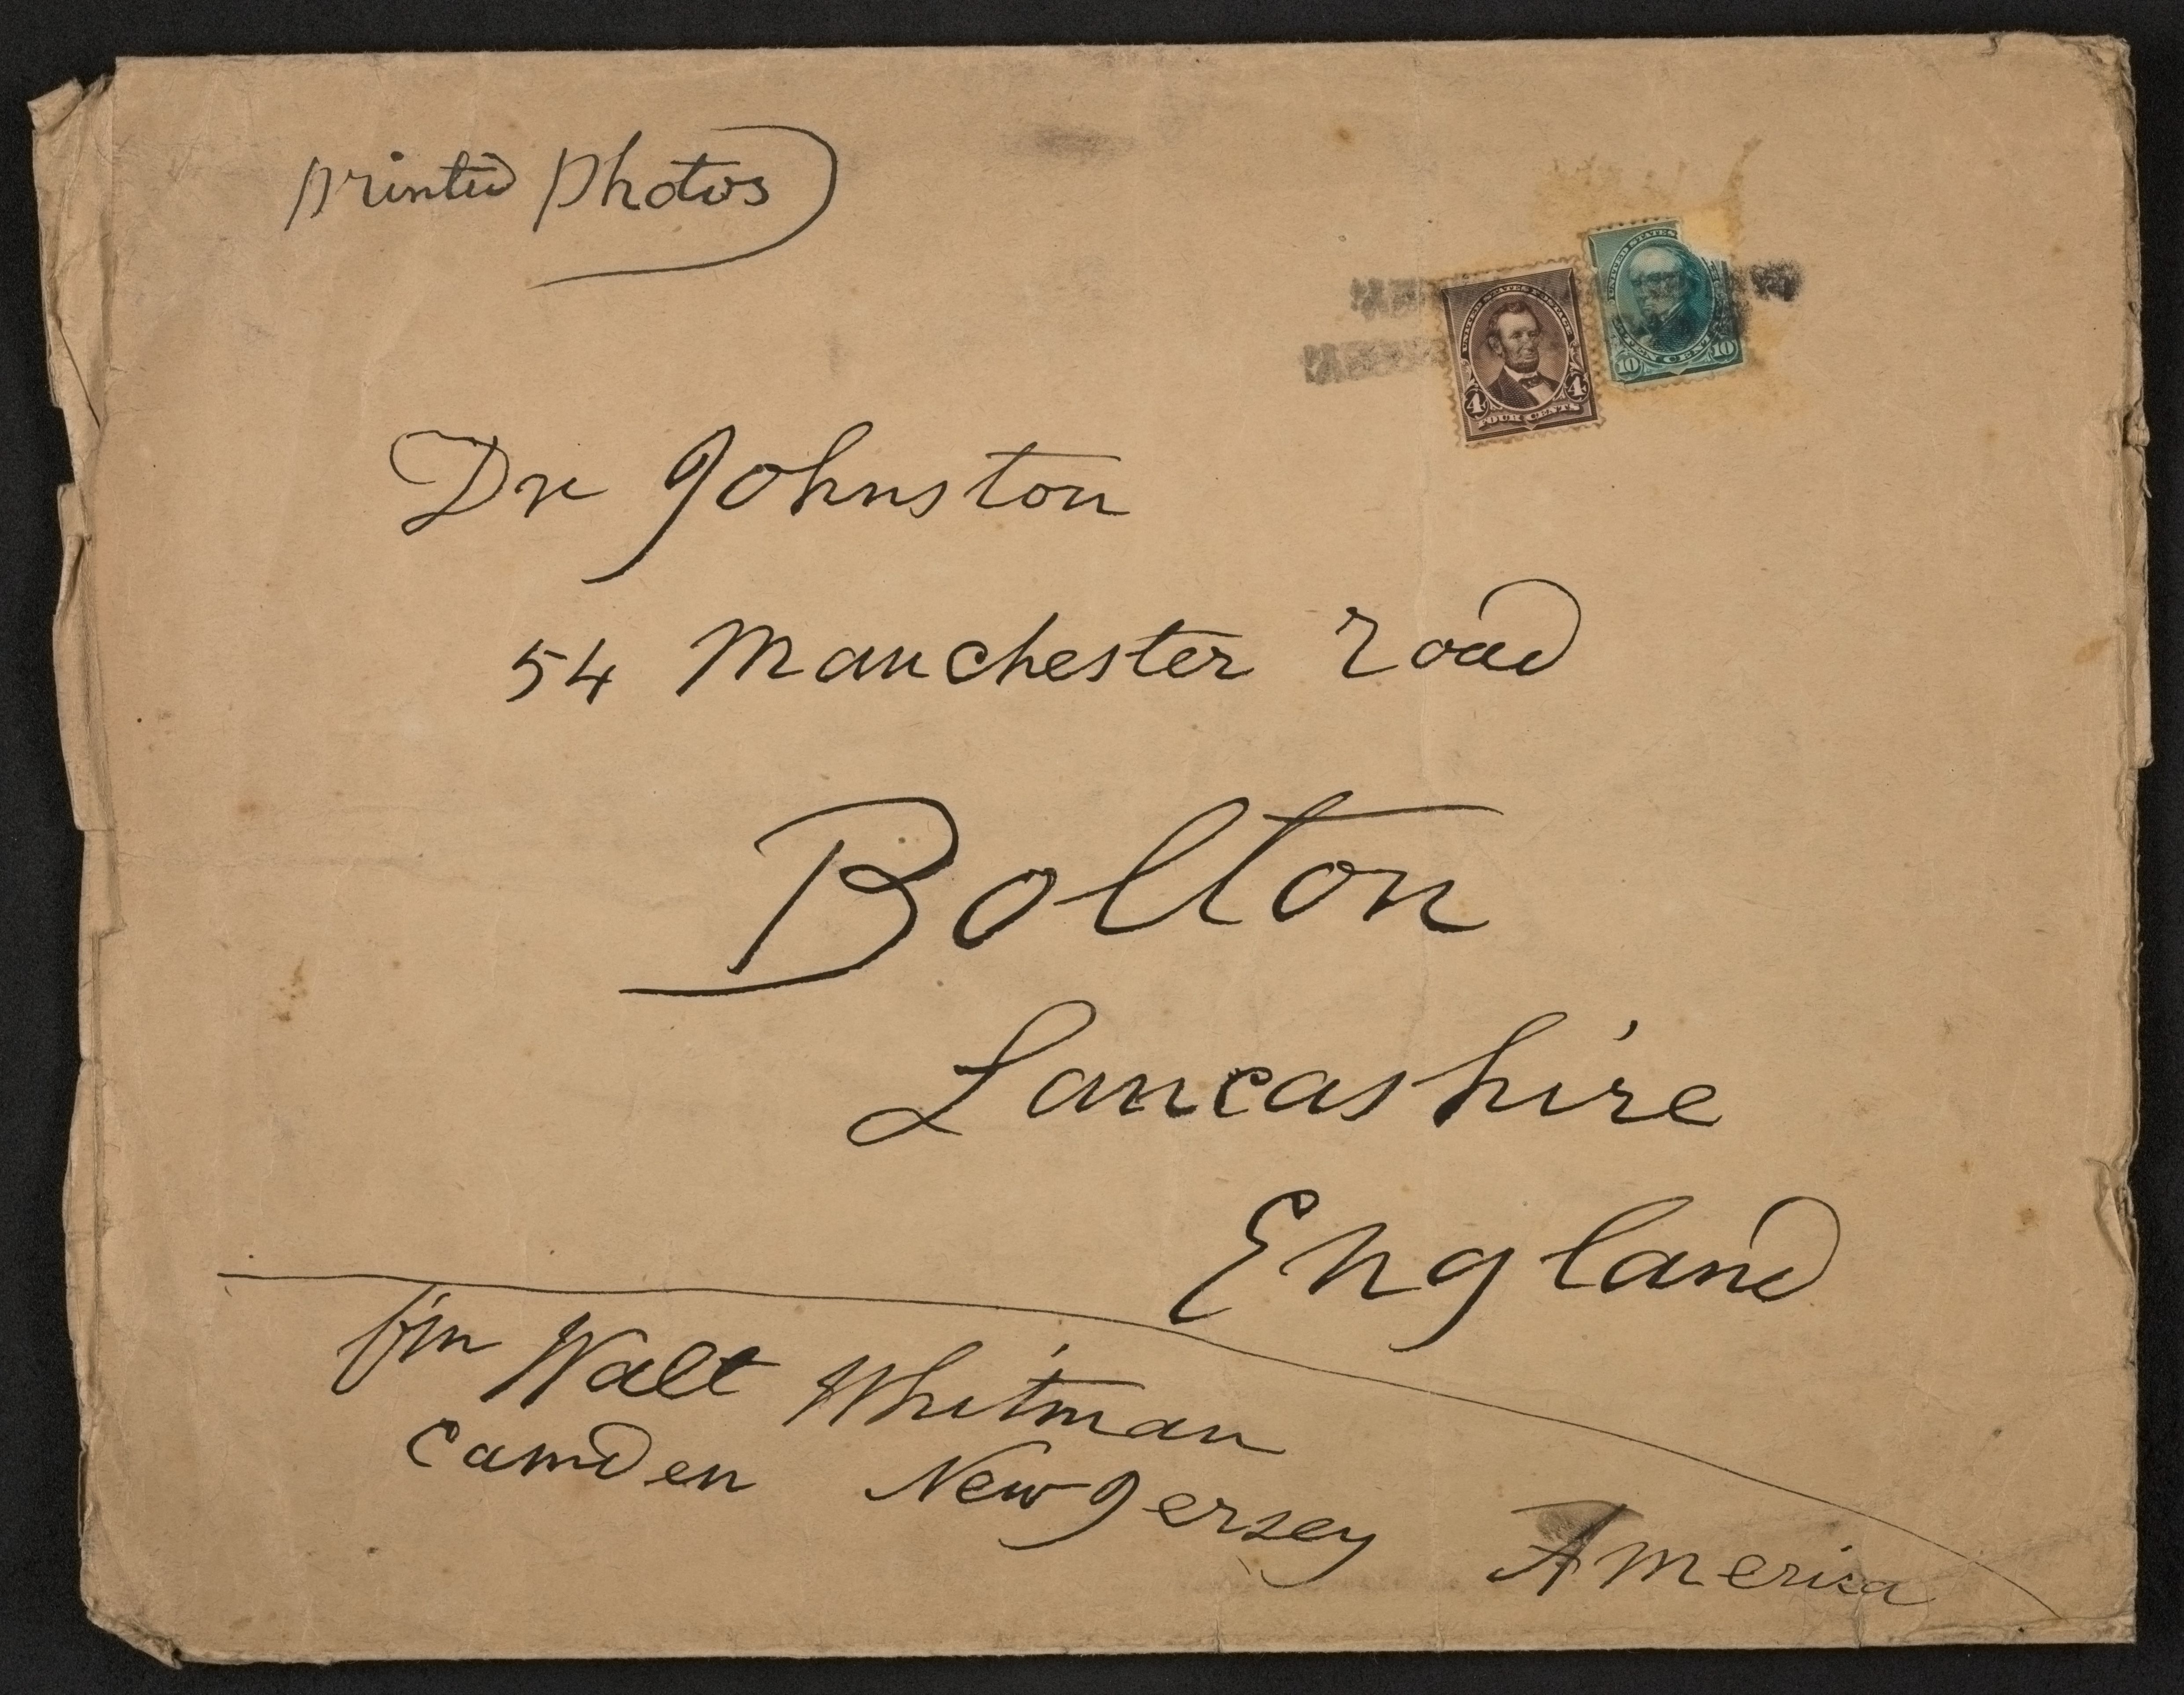 printed photos
UNITED STATES
TEN CENTS
10 10
UNITED STATES POSTAGE
4 4
FOUR CENTS
Dr Johnston
54 Manchester road
Bolton
Lancashire
England
f'm Walt Whitman
Camden New Jersey America